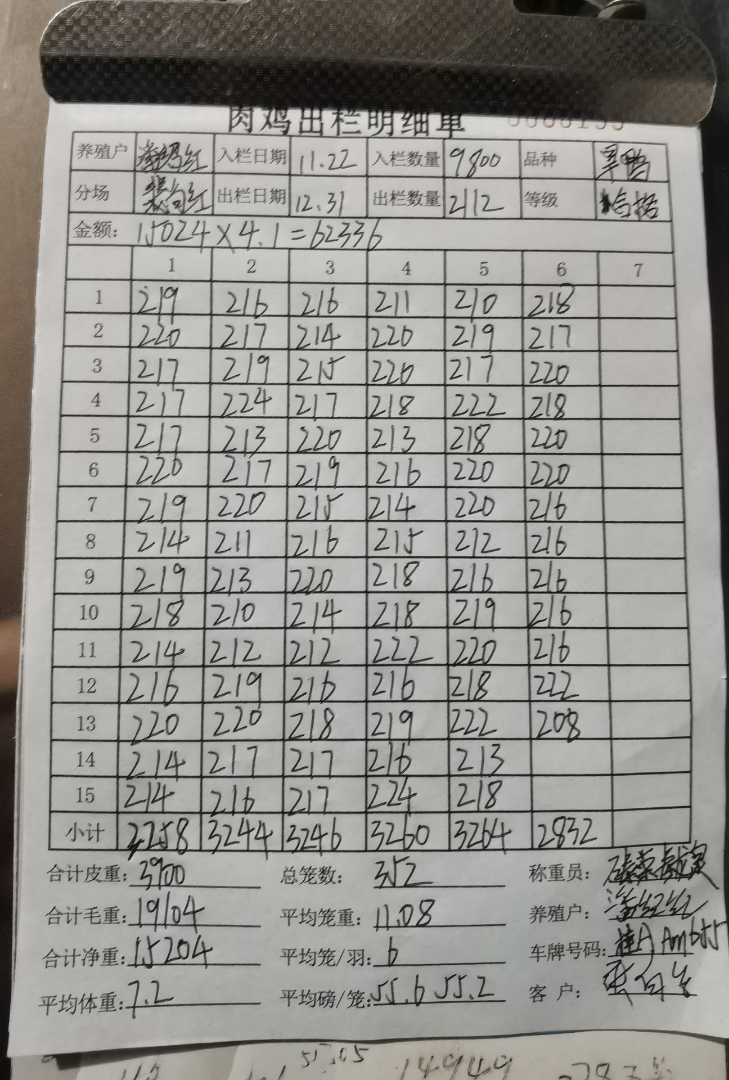 肉鸡出栏明细单
养殖户 入栏日期 11.22 入栏数量 9800 品种
分场 出栏日期 12.31 出栏数量 2112 等级 合格
金额: 15024×4.1=62336
1 2 3 4 5 6 7
1 219 216 216 211 210 218
2 220 217 214 220 219 217
3 217 219 215 220 217 220
4 217 224 217 218 222 218
5 217 213 220 213 218 220
6 220 217 219 216 220 220
7 219 220 215 214 220 216
8 214 211 216 215 212 216
9 219 213 220 218 216 216
10 218 210 214 218 219 216
11 214 212 212 222 220 216
12 216 219 216 216 218 222
13 220 220 218 219 222 208
14 214 217 217 216 213
15 214 216 217 224 218
小计 3258 3244 3246 3260 3264 2832
合计皮重: 3900 总笼数: 352 称重员:
合计毛重: 19104 平均笼重: 11.08 养殖户:
合计净重: 15204 平均笼/羽: 6 车牌号码:
平均体重: 7.2 平均磅/笼: 55.6 55.2 客户:
14949